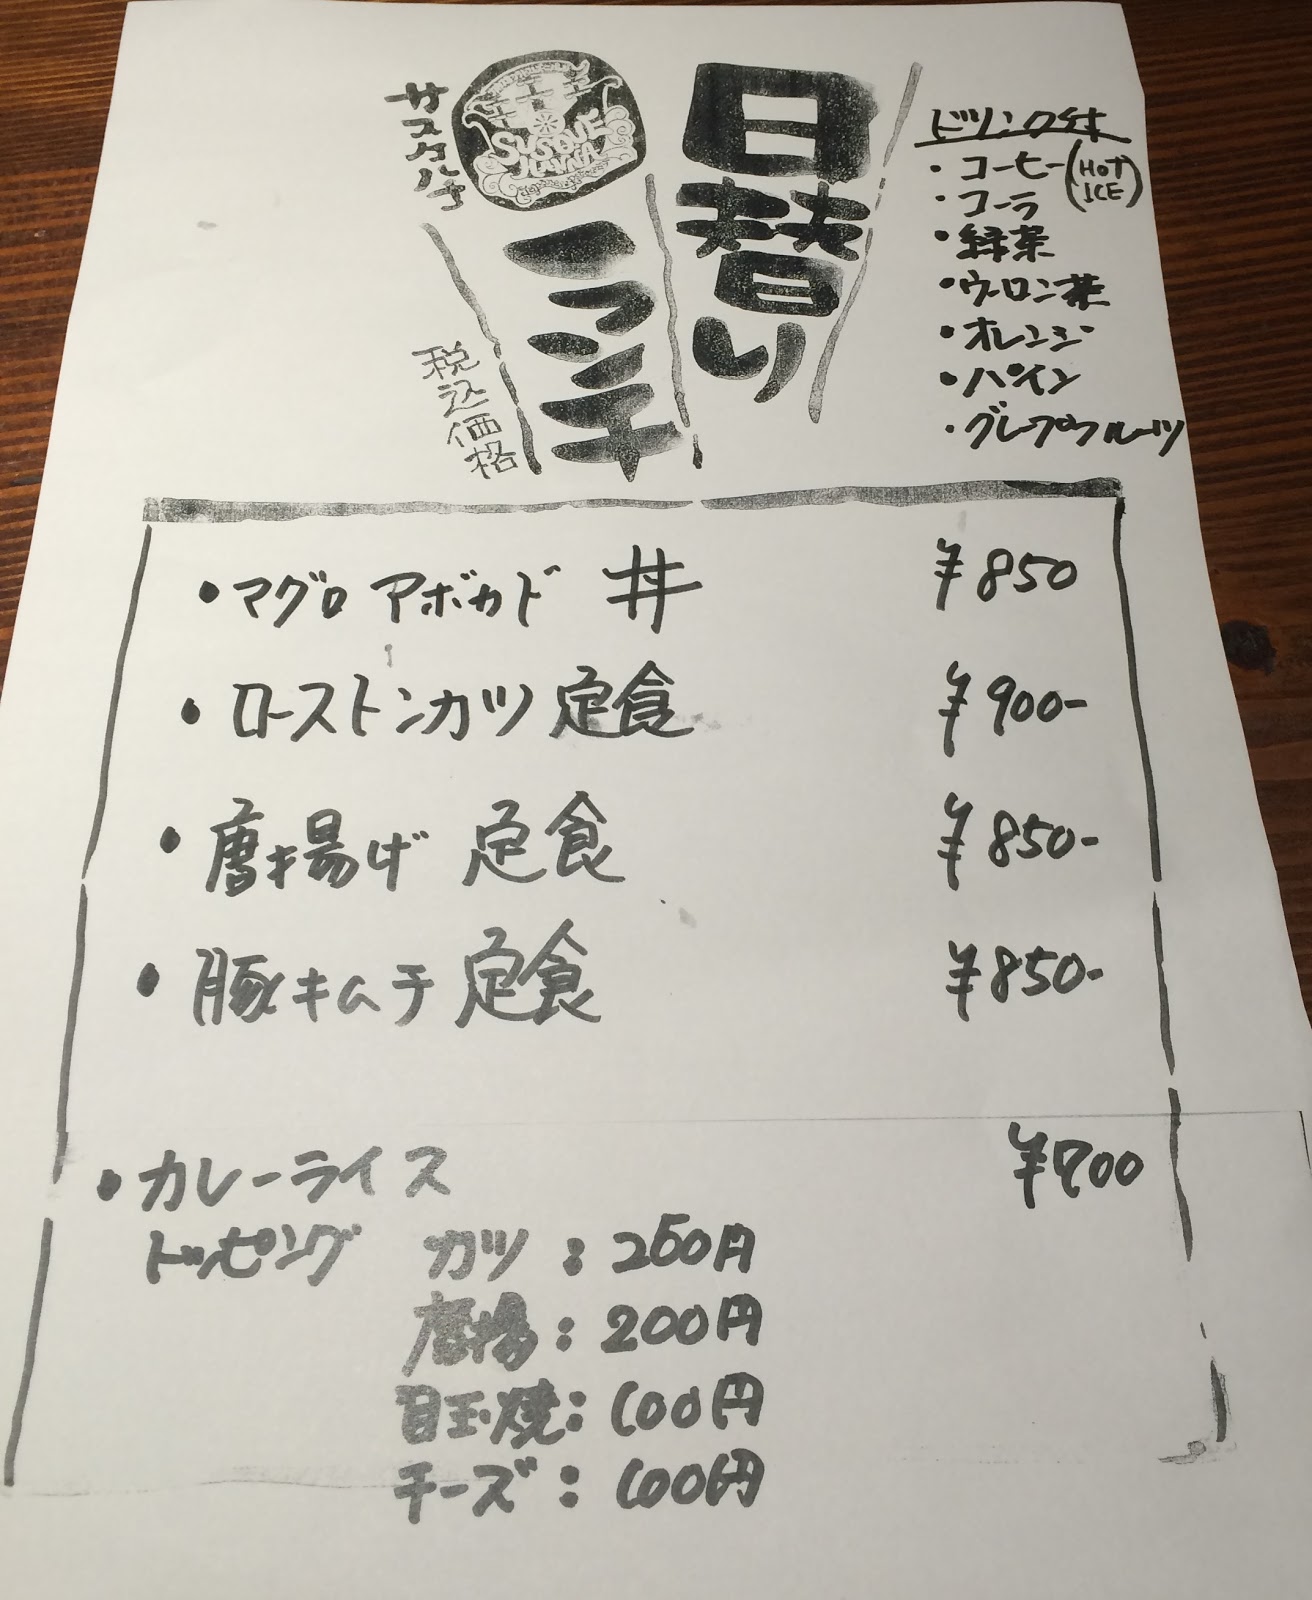 日替り
ランチ
SUSQUE
HANNA
サスクハナ
税込価格
ドリンク付
・コーヒー(HOT ICE)
・コーラ
・緑茶
・ウーロン茶
・オレンジ
・パイン
・グレープフルーツ
・マグロ アボカド 丼 ¥850
・ローストンカツ 定食 ¥900-
・唐揚げ 定食 ¥850-
・豚キムチ 定食 ¥850-
・カレーライス ¥700
トッピング カツ:250円
唐揚:200円
目玉焼:100円
チーズ:100円